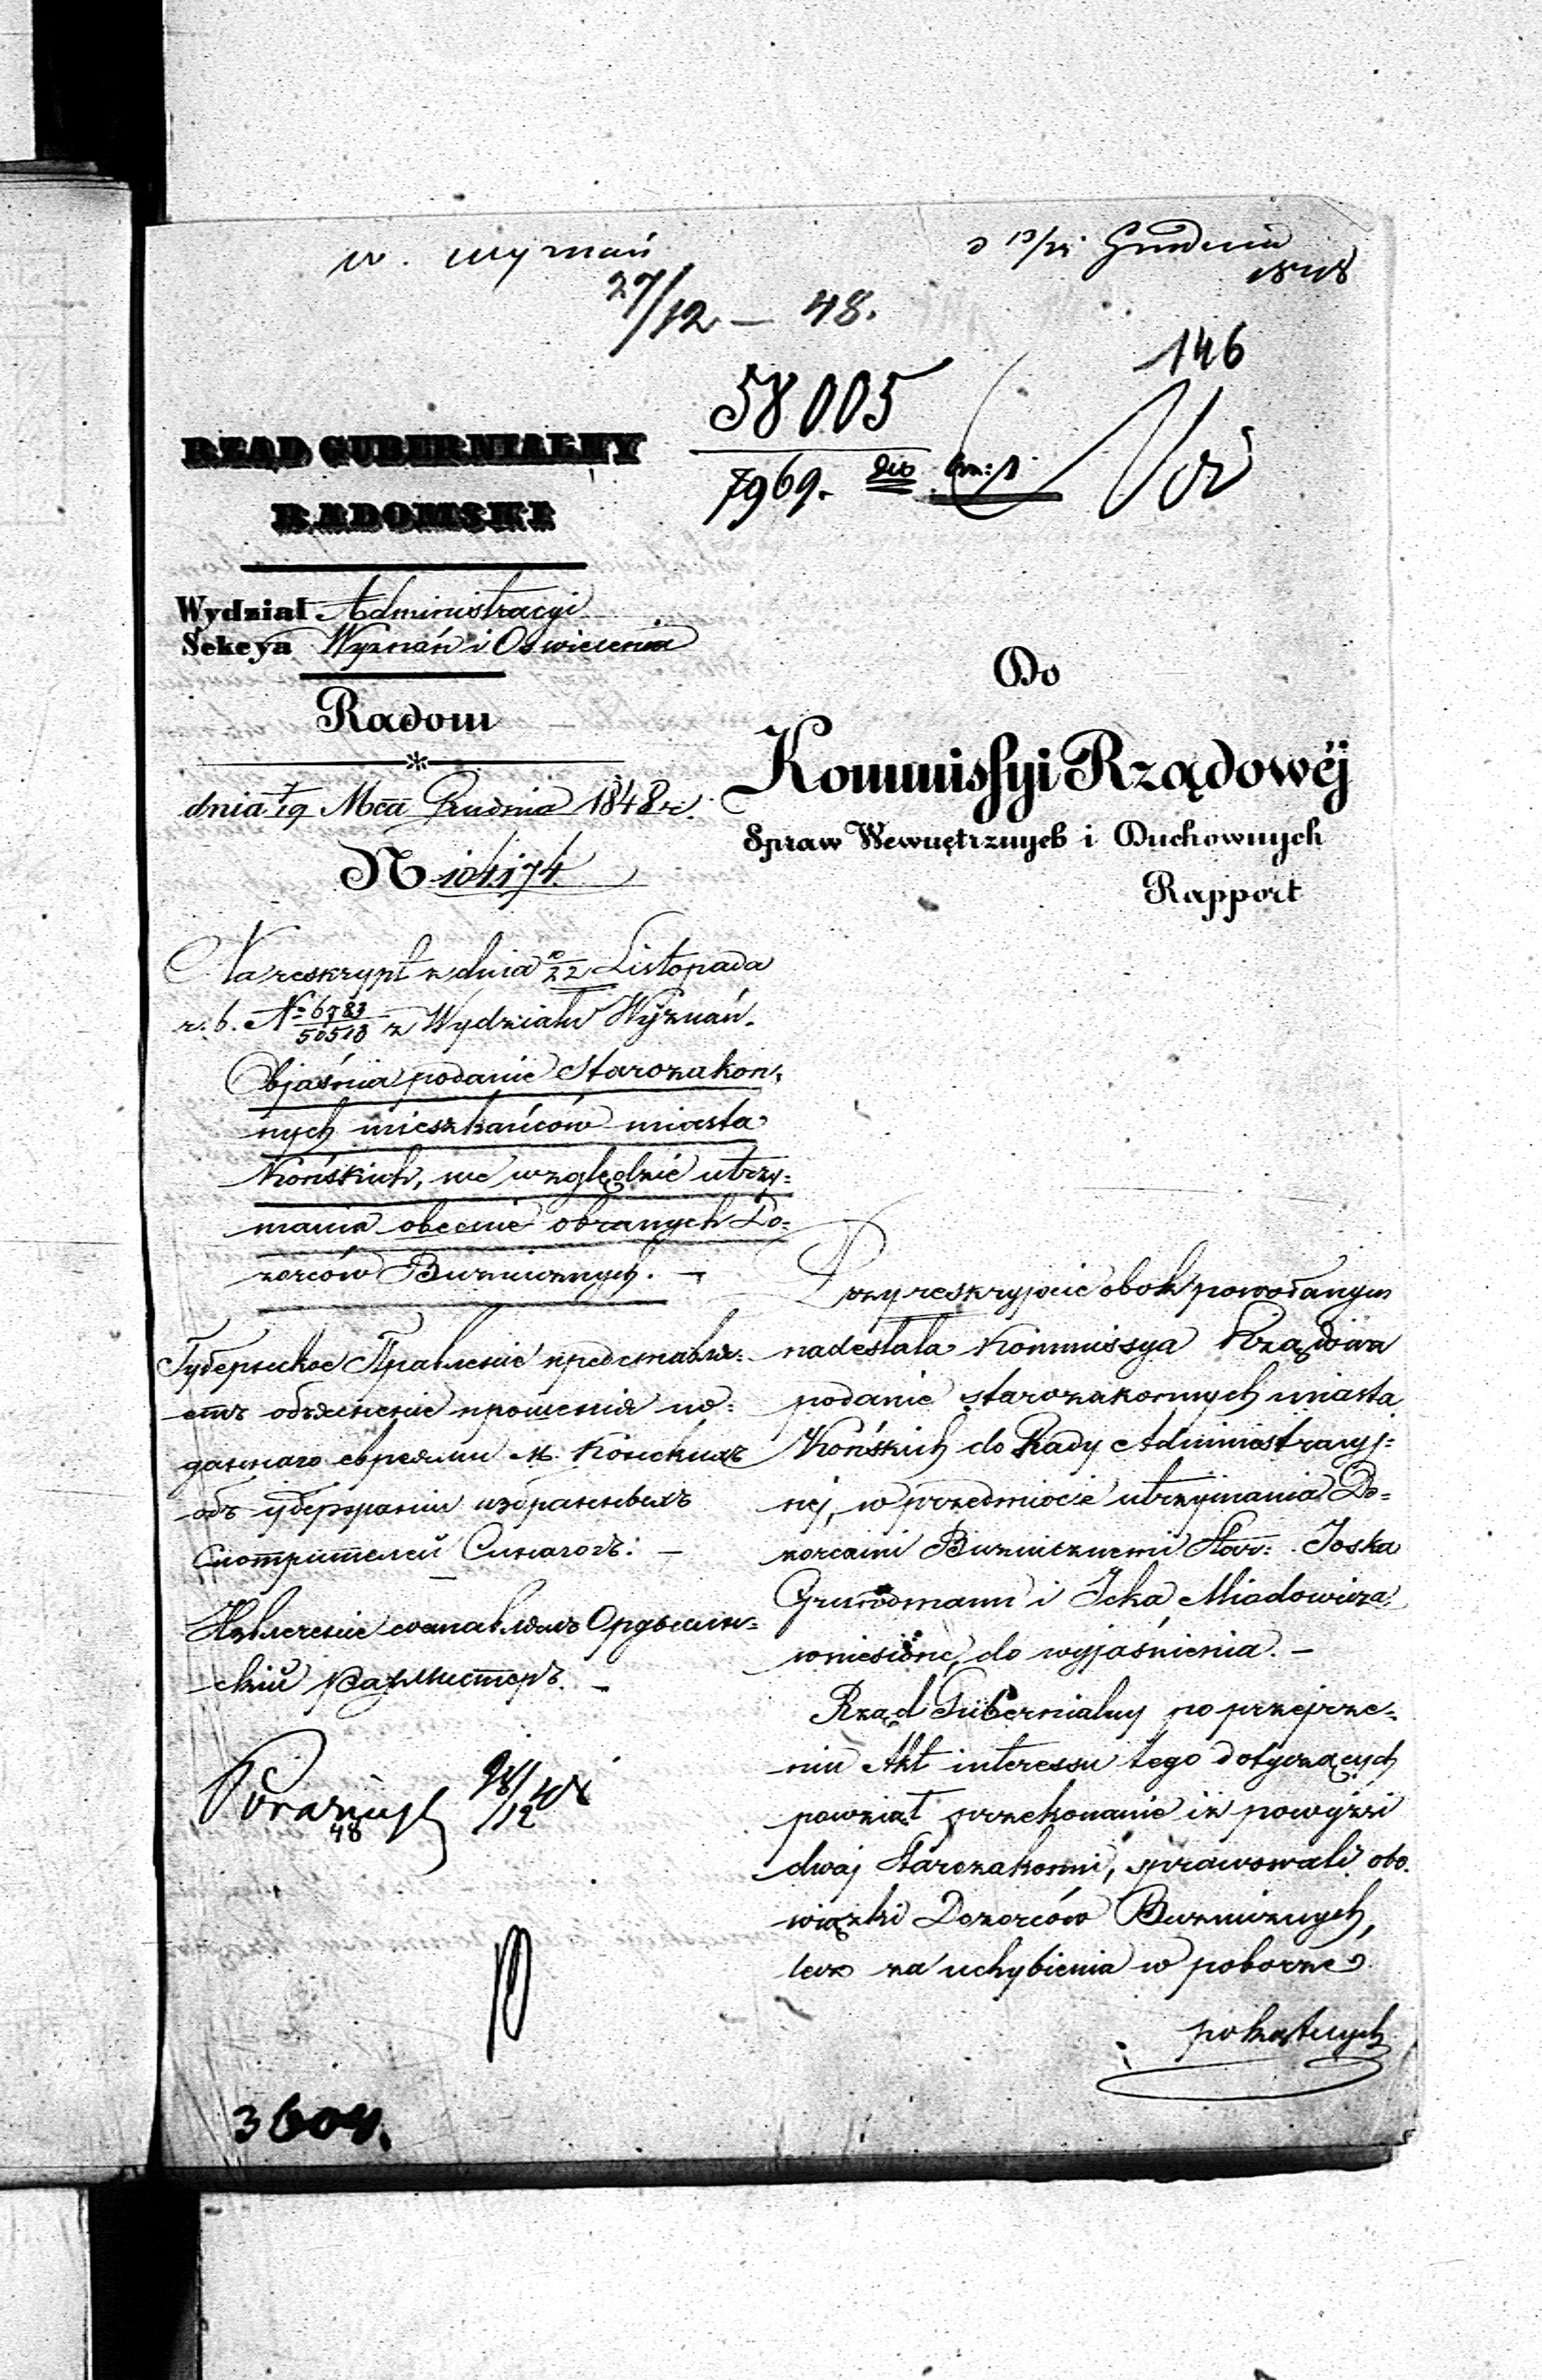 w. wyznań
27/12 – 48.
d 13/25 Grudnia
1848
146
58005
7969.
RZĄD GUBERNIALNY
RADOMSKI
Wydział Administracyi
Sekcya Wyznań i Oświecenia
Radom
dnia 7/19 Mca Grudnia 1848 r.
N 104174.
Do
Kommissyi Rządowéj
Spraw Wewnętrznych i Duchownych
Rapport
Na reskrypt z dnia 10/22 Listopada
r. b. No 6783/50510 z Wydziału Wyznań.
Objaśnia podanie Starozakon-
nych mieszkańców miasta
Końskich, we względzie utrzy=
mania obecnie obranych Do=
zorców Bużniczných. –
Губернское Правленіе представля=
етъ объясненіе прошенія по=
даннаго евреями м. Конскихъ
объ удержаніи избранныхъ
Смотрителей Синагогъ. –
Извлеченіе составлялъ Ордынин=
скій
48
3604.
Przy reskrypcie obok powołanym
nadesłała Kommissya Rządowa
podanie starozakonnych miasta
Końskich do Rady Administracyj=
néj, w przedmiocie utrzymania Do=
zorcami Bużnicznemi Star: Joska
Grundmann i Icka Miadowicza
wniesione, do wyjaśnienia. –
Rząd Gubernialny po przejrze=
niu Akt interessu tego dotyczących
powziął przekonanie iż powyżsi
dwaj Starozakonni, sprawowali obo-
wiązki Dozorców Bużnicznych,
lecz za uchybienia w poborze
pokątnych